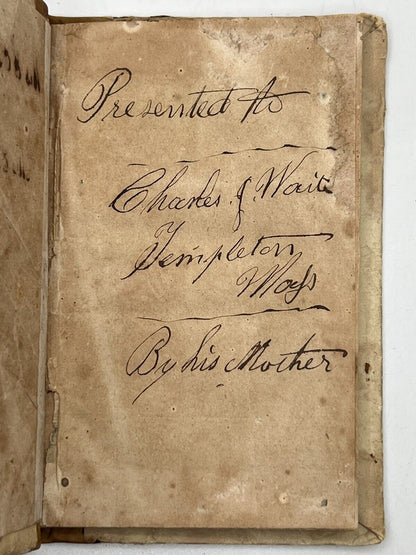 Presented to
Charles. J. Wait
Templeton
Mass
By his Mother